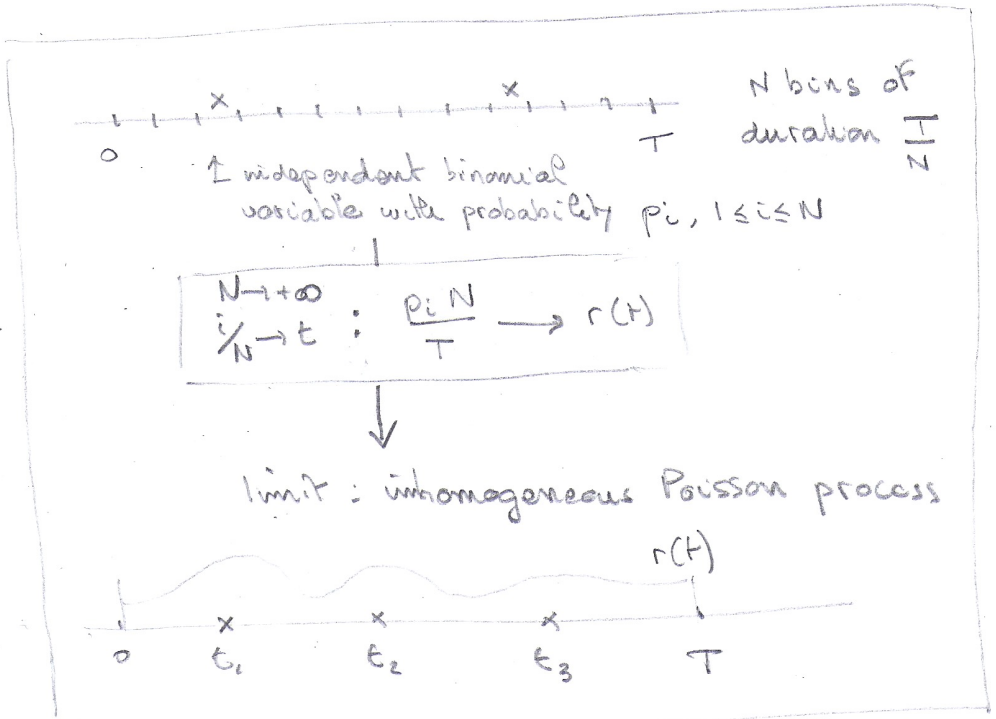 x x N bins of
0 T duration T/N
↑ independent binomial
variable with probability pi, 1≤i≤N
N→+∞
i/N→t : pi N/T → r(t)
limit : inhomogeneous Poisson process
r(t)
x x x
0 t1 t2 t3 T